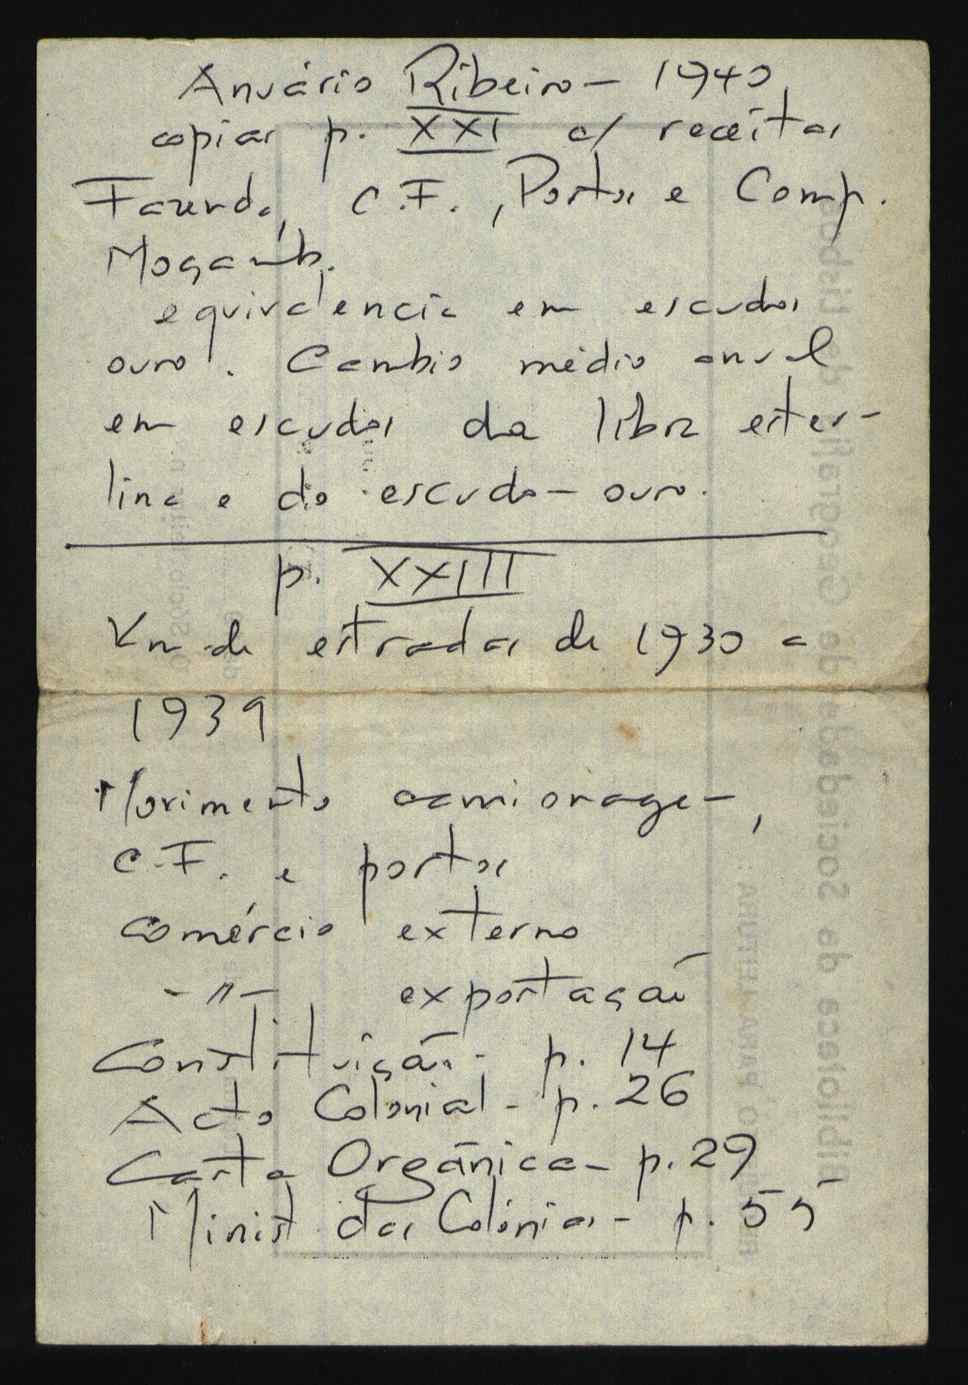 Anuário Ribeiro – 1940
copiar p. XXI c/ receitas
Fazenda, C.F., Portos e Comp.
Moçamb.
equivalencia em escudos
ouro. Cambio médio anual
em escudos da libra ester-
lina e do escudo-ouro.
p. XXIII
Km de estradas de 1930 a
1939
Movimento camionagem,
C.F. e portos
Comércio externo
-"- exportação
Constituição - p. 14
Acto Colonial - p. 26
Carta Orgânica - p. 29
Minist das Colónias - p. 55
Biblioteca da Sociedade de Geografia de Lisboa